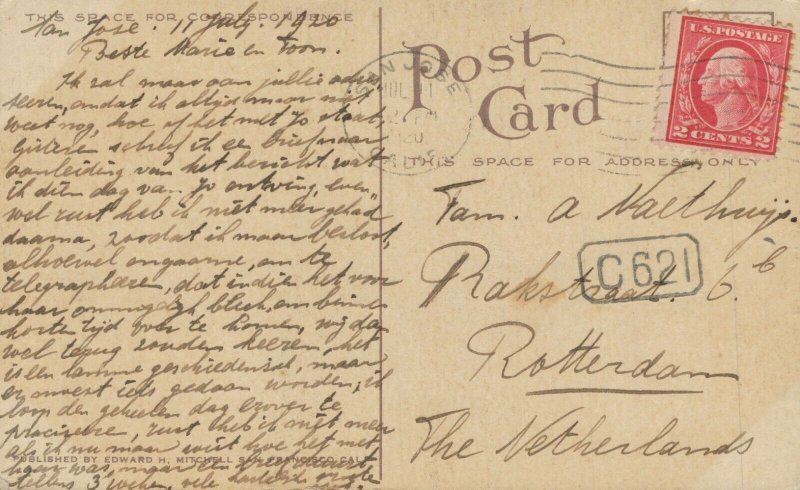 THIS SPACE FOR CORRESPONDENCE
San José. 11 July. 1920
Beste Marie en Toon.
Ik zal maar aan jullie adres
seeren, omdat ik altijd maar niet
weet nog, hoe of het met Jo staat,
Gisteren schreef ik een brief naar
aanleiding van het bericht wat
ik dien dag van Jo ontving, even„
wel rust heb ik niet meer gehad
daarna, zoodat ik maar besloot,
alhoewel ongaarne, om te
telegrapheeren, dat indien het voor
haar onmogelijk bleek, om binnen
korten tijd over te komen, wij dan
wel terug zouden keeren, het
is een lamme geschiedenis, maar
er moest iets gedaan worden; ik
loop den geheelen dag erover te
prakizeere, rust heb ik niet meer
als ik nu maar wist hoe het met
haar was, maar een
tellens 3 weken, vele hartelijk
PUBLISHED BY EDWARD H. MITCHELL SAN FRANCISCO, CAL.
Post
Card
SAN JOSE
JUL 11
20
U.S. POSTAGE
2 CENTS 2
THIS SPACE FOR ADDRESS ONLY
Fam. a Naethuijs.
C621
Rakstraat. 6 b
Rotterdam
The Netherlands